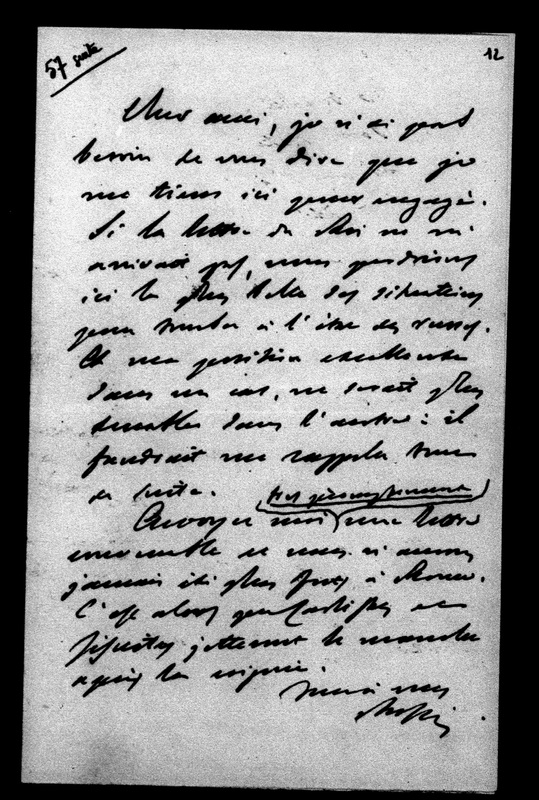 57 suite
12
Cher ami, je n'ai pas
besoin de vous dire que je
me tiens ici pour engagé.
Si la lettre du Roi ne m'
arrivait pas, nous perdrions
ici la plus belle des situations
pour tomber à l'état de
Et ma position excellente
dans un cas, ne serait plus
tenable dans l'autre : il
faudrait me rappeler tout
de suite.
très promptement
Envoyez moi une lettre
convenable et nous n'aurons
jamais été plus forts à Rome.
C'est alors que Carlistes et
Jésuites jetteront le manche
après la cognée.
Mille
Rossi